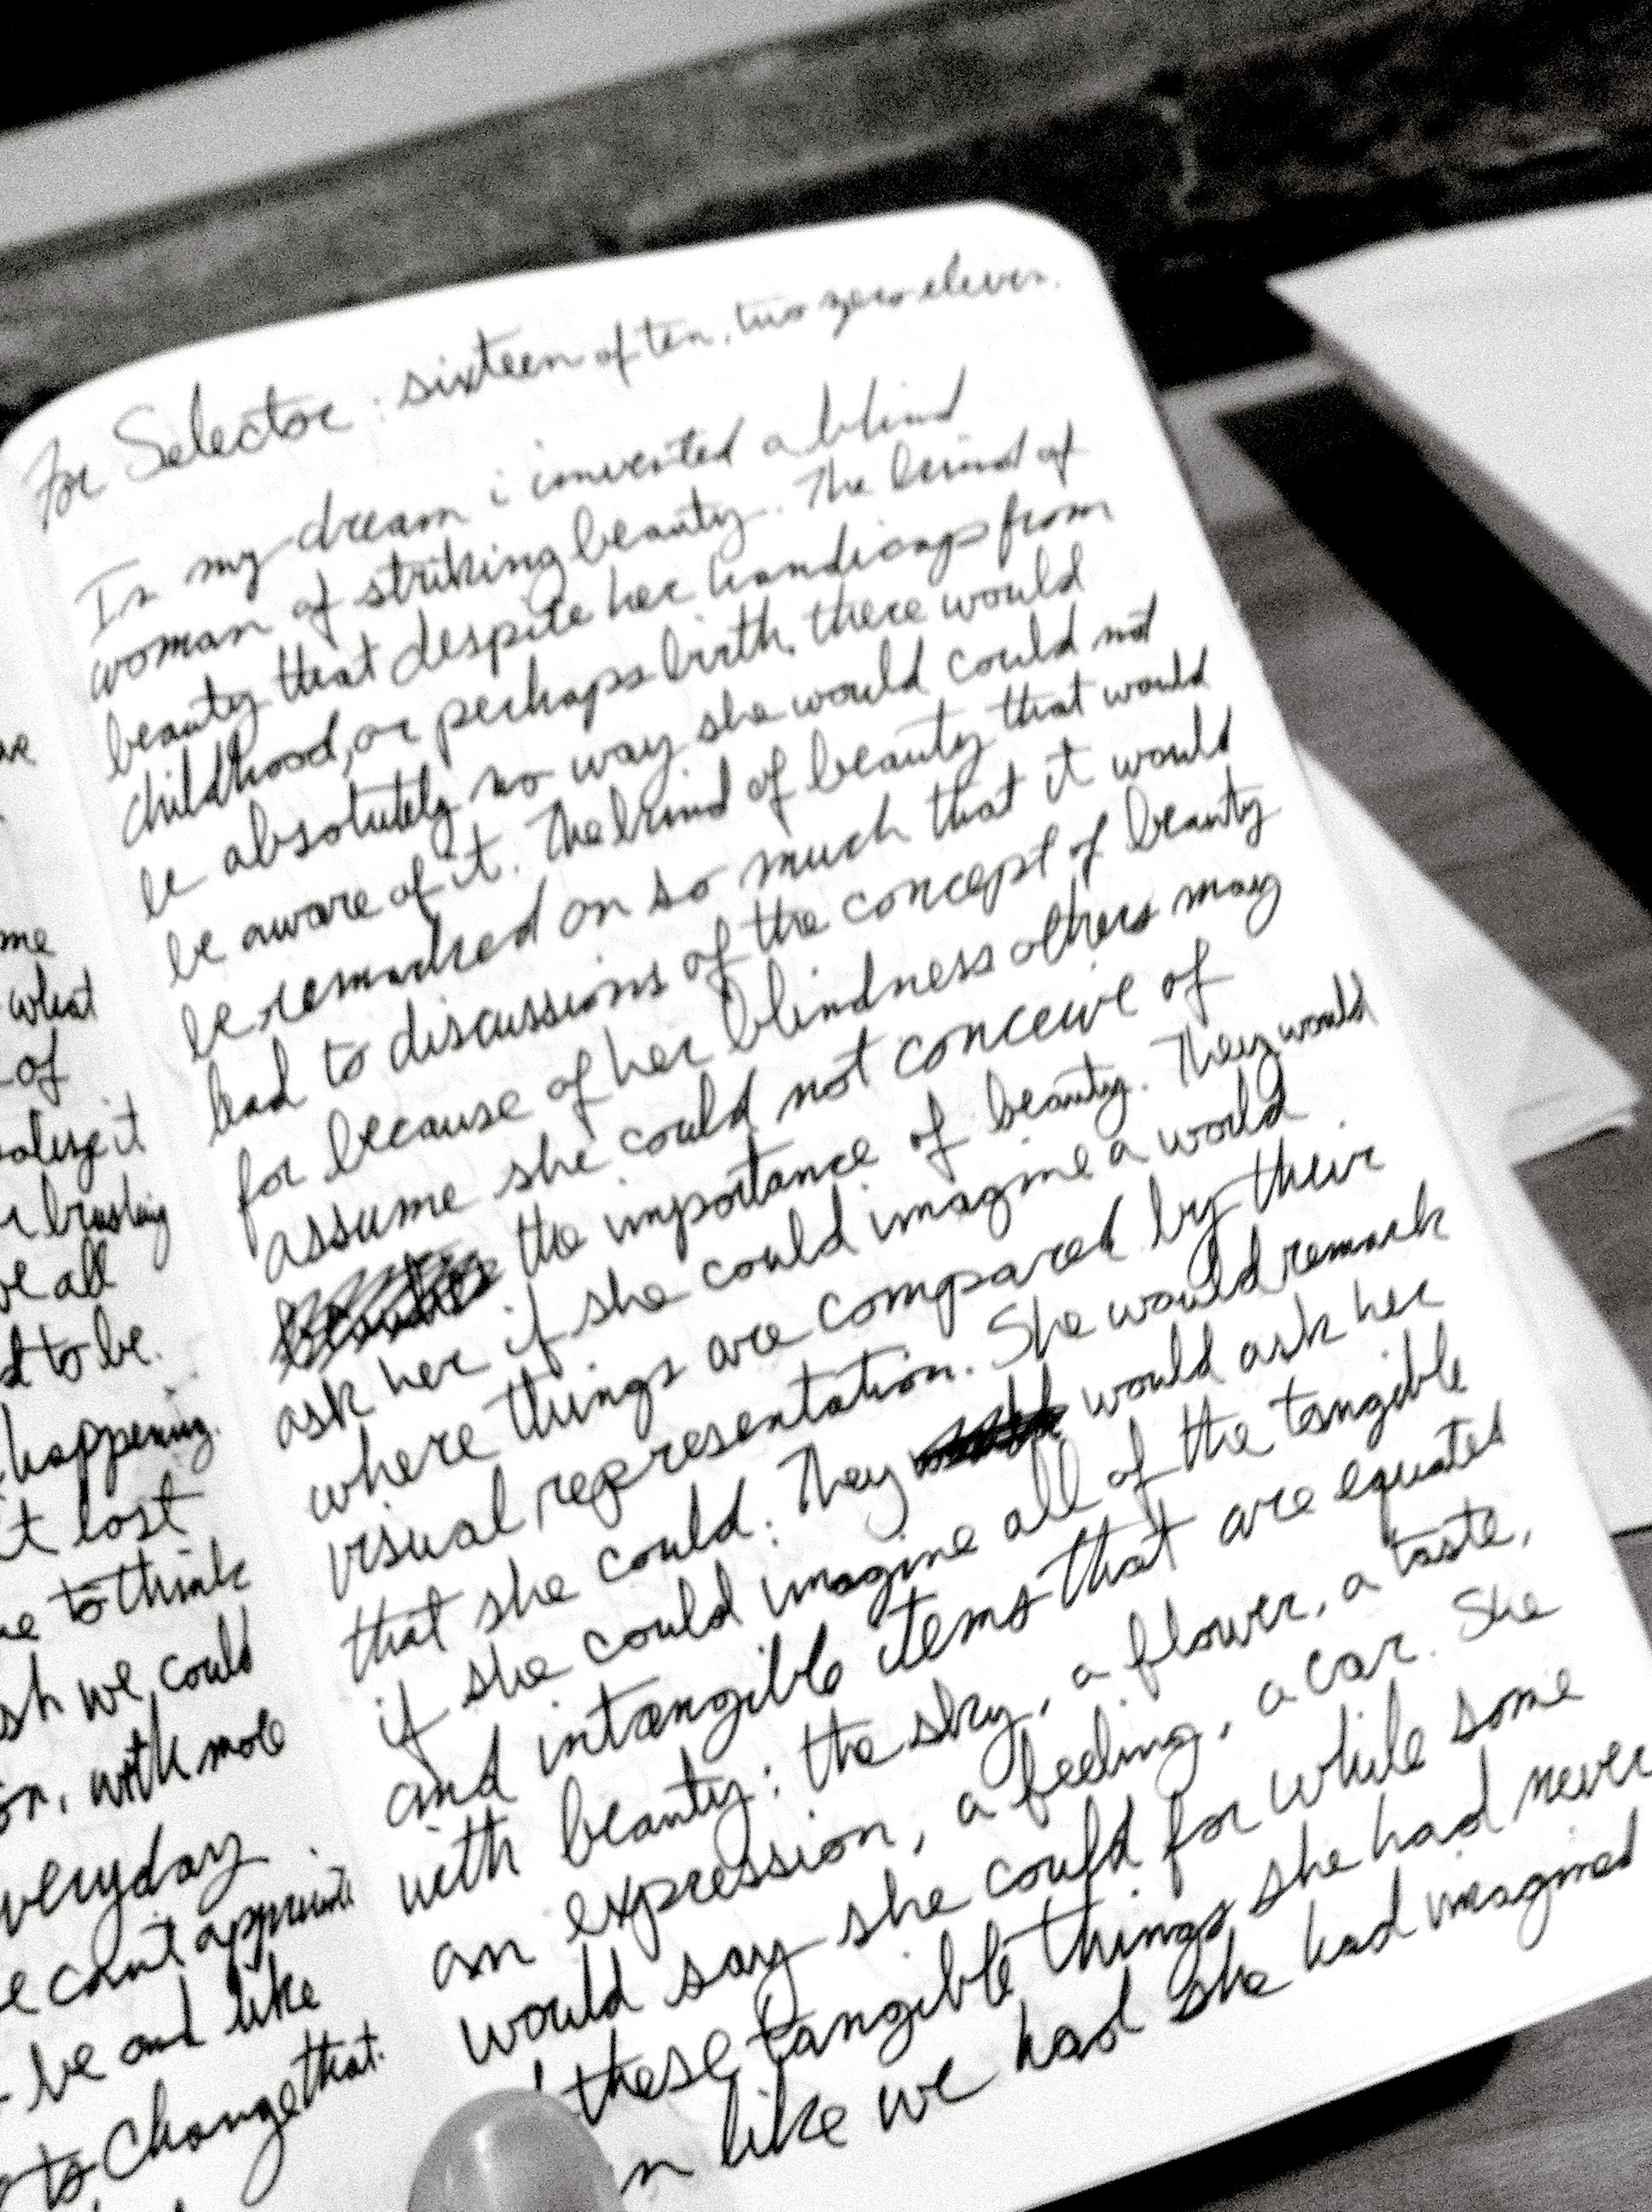 me
what
of
brushing
all
to be.
happening.
lost
to think
we could
with more
everyday
can't
be and like
to change that.
For Selector: sixteen of ten, two zero eleven.
In my dream i invented a blind
woman of striking beauty. The kind of
beauty that despite her handicap from
childhood, or perhaps birth, there would
be absolutely no way she would could not
be aware of it. The kind of beauty that would
be remarked on so much that it would
lead to discussions of the concept of beauty
for because of her blindness others may
assume she could not conceive of
the importance of beauty. They would
ask her if she could imagine a world
where things are compared by their
visual representation. She would remark
that she could. They would ask her
if she could imagine all of the tangible
and intangible items that are equated
with beauty: the sky, a flower, a taste,
an expression, a feeling, a car. She
would say she could for while some
these tangible things she had never
like we had she had imagined